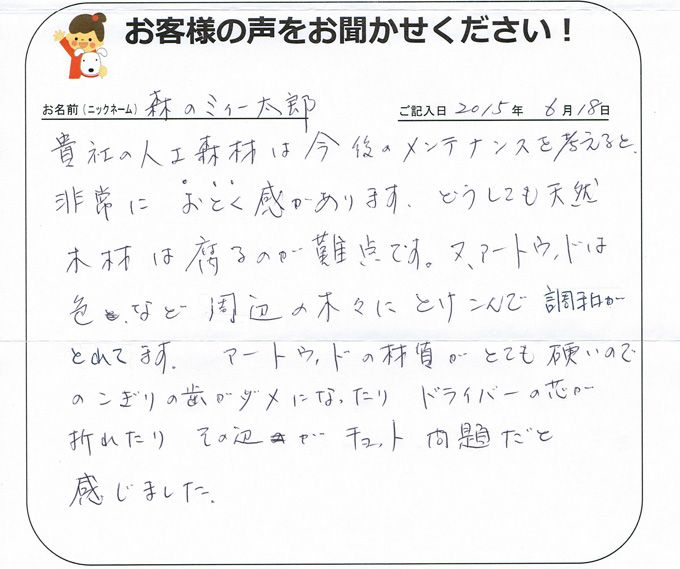 お客様の声をお聞かせください！
お名前（ニックネーム） 森のミィー太郎 ご記入日 2015年 6月18日
貴社の人工森材は今後のメンテナンスを考えると、
非常に おとく感があります. どうしても天然
木材は腐るのが難点です。又、アートウッドは
色、など 周辺の木々にとけこんで 調和が
とれてます. アートウッドの材質がとても硬いので
のこぎりの歯がダメになったり ドライバーの芯が
折れたり その辺が チョット 問題だと
感じました.